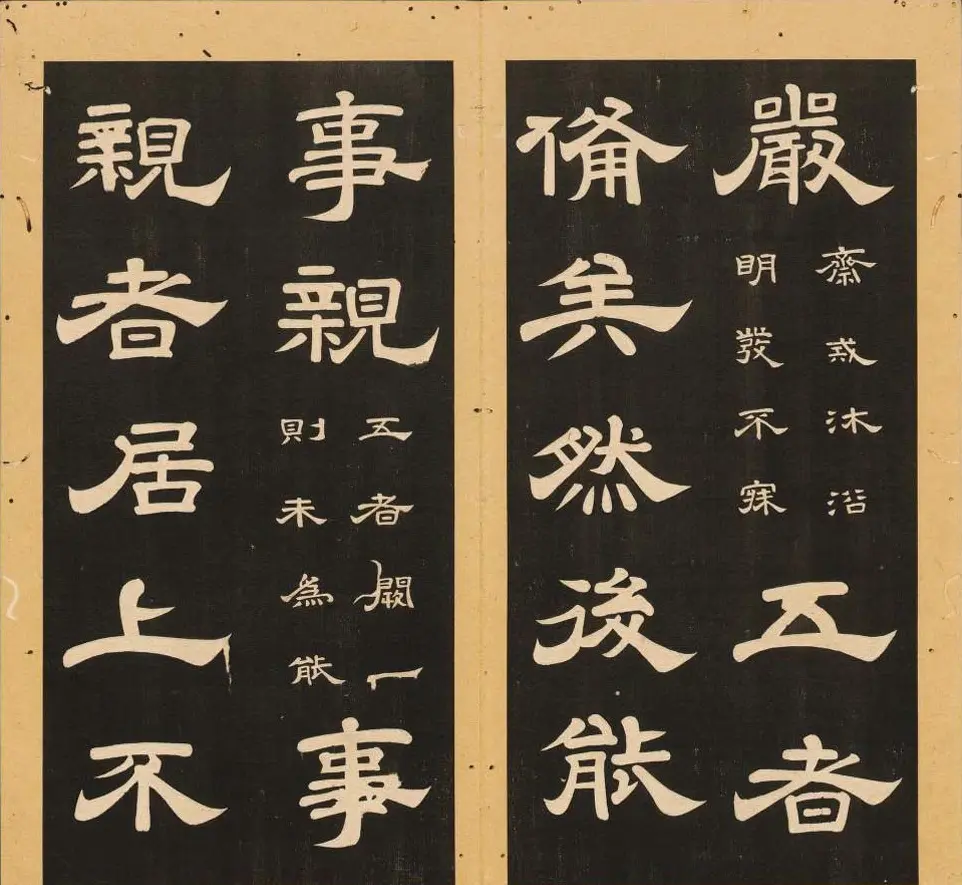 嚴齋戒沐浴明發不寐五者
備矣然後能
事親五者闕一則未為能事
親者居上不